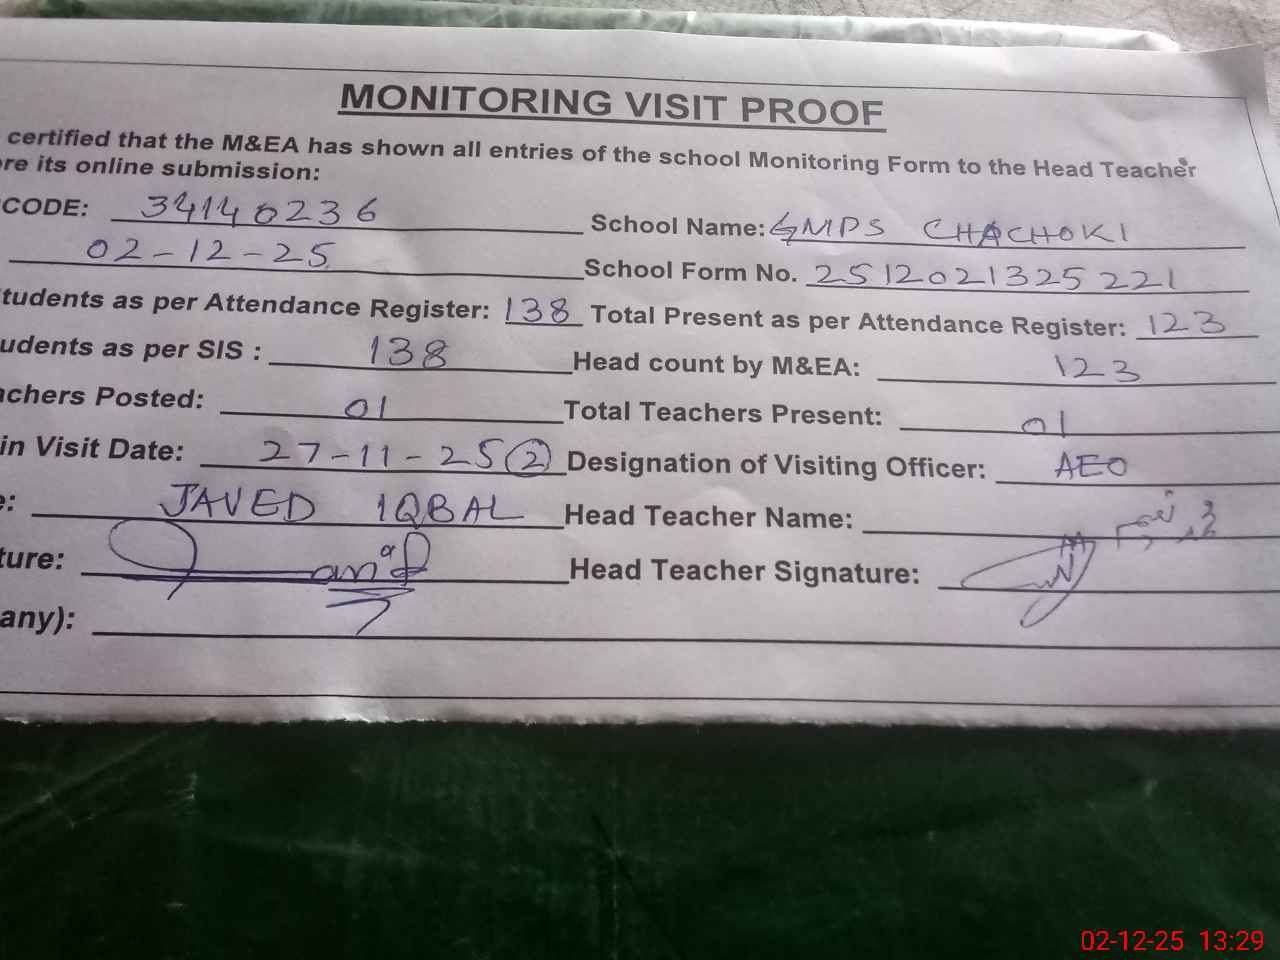 MONITORING VISIT PROOF
certified that the M&EA has shown all entries of the school Monitoring Form to the Head Teacher
ore its online submission:
CODE: 34140236 School Name: GMPS CHACHOKI
02-12-25 School Form No. 2512021325221
tudents as per Attendance Register: 138 Total Present as per Attendance Register: 123
udents as per SIS : 138 Head count by M&EA: 123
achers Posted: 01 Total Teachers Present: 01
in Visit Date: 27-11-25 2 Designation of Visiting Officer: AEO
e: JAVED IQBAL Head Teacher Name:
ture: Head Teacher Signature:
any):
02-12-25 13:29